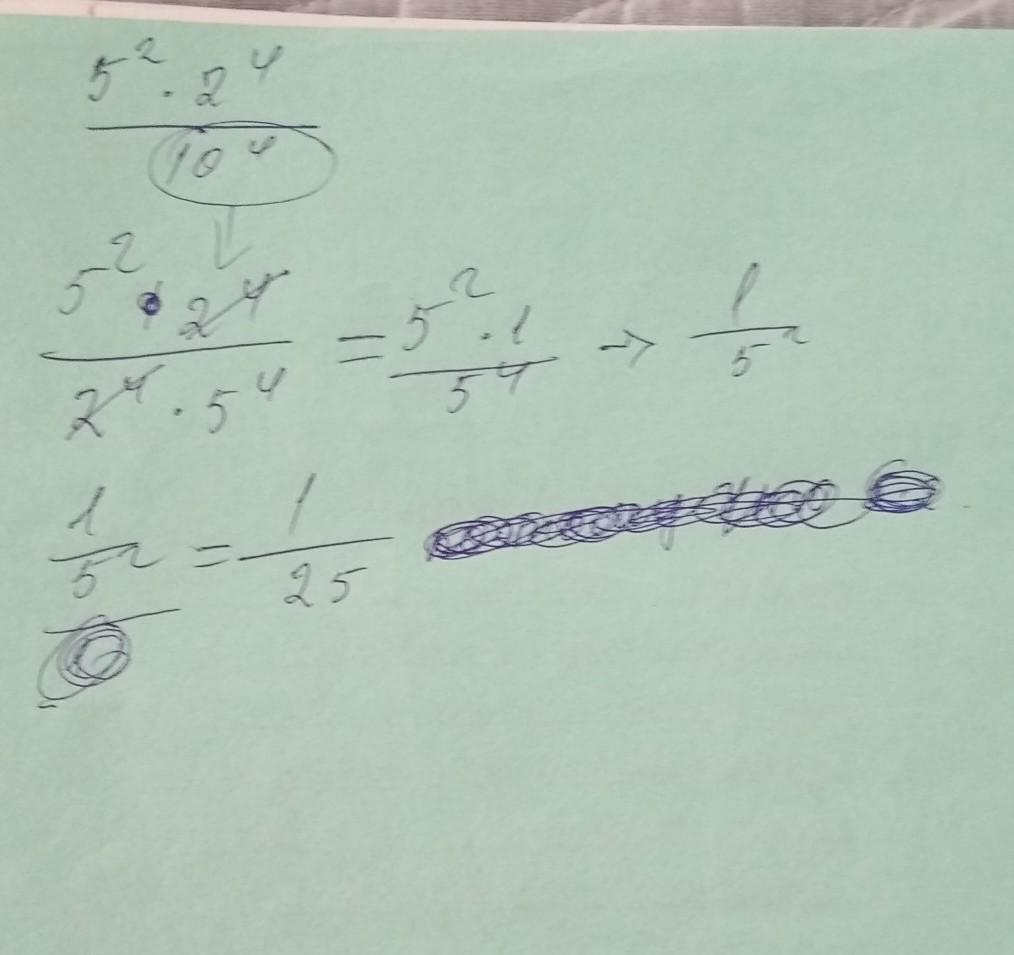 5² · 2⁴
10⁴
5² · 2⁴ / 2⁴ · 5⁴ = 5² · 1 / 5⁴ → 1 / 5²
1 / 5² = 1 / 25